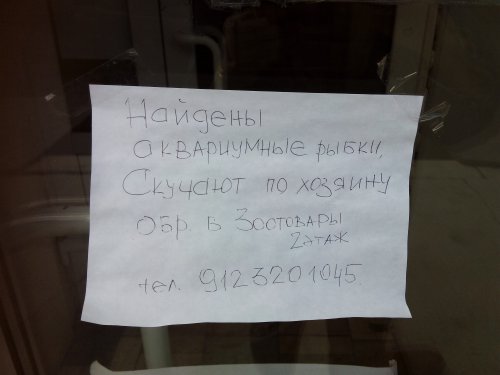 Найдены
аквариумные рыбки,
Скучают по хозяину
обр. в Зоотовары
2 этаж
тел. 9123201045